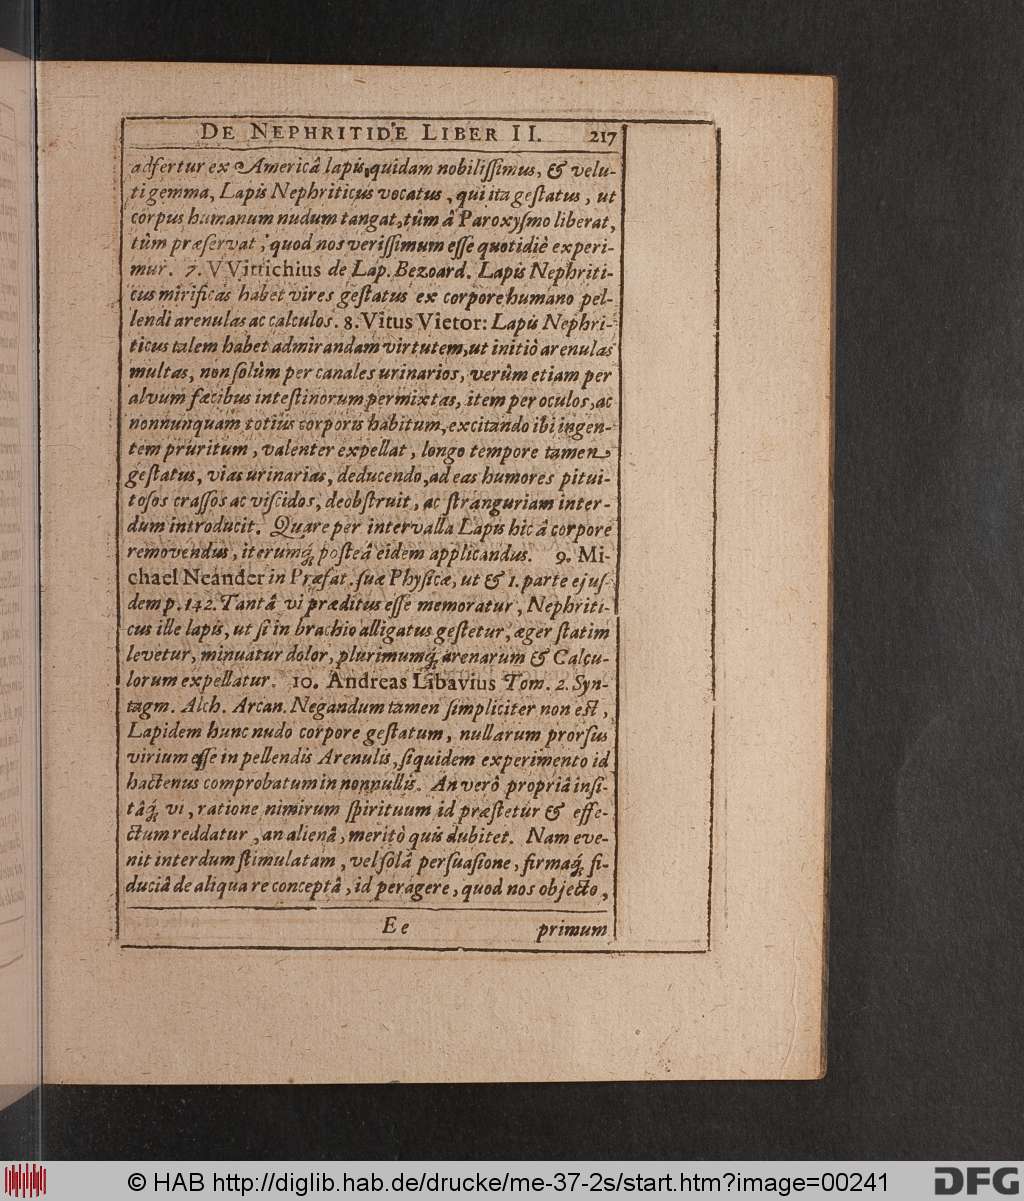 DE NEPHRITIDE LIBER II. 217
adfertur ex Americâ lapis quidam nobiliſſimus, & velu-
ti gemma, Lapis Nephriticus vocatus, qui ita geſtatus, ut
corpus humanum nudum tangat, tùm â Paroxyſmo liberat,
tùm præſervat, quod nos veriſſimum eſſe quotidiè experi-
mur. 7. VVittichius de Lap. Bezoard. Lapis Nephriti-
cus mirificas habet vires geſtatus ex corpore humano pel-
lendi arenulas ac calculos. 8. Vitus Vietor: Lapis Nephri-
ticus talem habet admirandam virtutem, ut initiò arenulas
multas, non ſolùm per canales urinarios, verùm etiam per
alvum fæcibus inteſtinorum permixtas, item per oculos, ac
nonnunquam totius corporis habitum, excitando ibi ingen-
tem pruritum, valenter expellat, longo tempore tamen
geſtatus, vias urinarias, deducendo, ad eas humores pitui-
toſos craſſos ac viſcidos, deobſtruit, ac ſtranguriam inter-
dum introducit. Quare per intervalla Lapis hic â corpore
removendus, iterumq́; poſteâ eidem applicandus. 9. Mi-
chael Neander in Præfat. ſuæ Phyſicæ, ut & 1. parte ejuſ-
dem p. 142. Tantâ vi præditus eſſe memoratur, Nephriti-
cus ille lapis, ut ſi in brachio alligatus geſtetur, æger ſtatim
levetur, minuatur dolor, plurimumq́; arenarum & Calcu-
lorum expellatur. 10. Andreas Libavius Tom. 2. Syn-
tagm. Alch. Arcan. Negandum tamen ſimpliciter non eſt,
Lapidem hunc nudo corpore geſtatum, nullarum prorſus
virium eſſe in pellendis Arenulis, ſiquidem experimento id
hactenus comprobatum in nonnullis. An verò propriâ inſi-
tâq́; vi, ratione nimirum ſpirituum id præſtetur & effe-
ctum reddatur, an alienâ, meritò quis dubitet. Nam eve-
nit interdum ſtimulatam, vel ſolâ perſuaſione, firmaq́; fi-
duciâ de aliqua re conceptâ, id peragere, quod nos objecto,
Ee primum
© HAB http://diglib.hab.de/drucke/me-37-2s/start.htm?image=00241
DFG